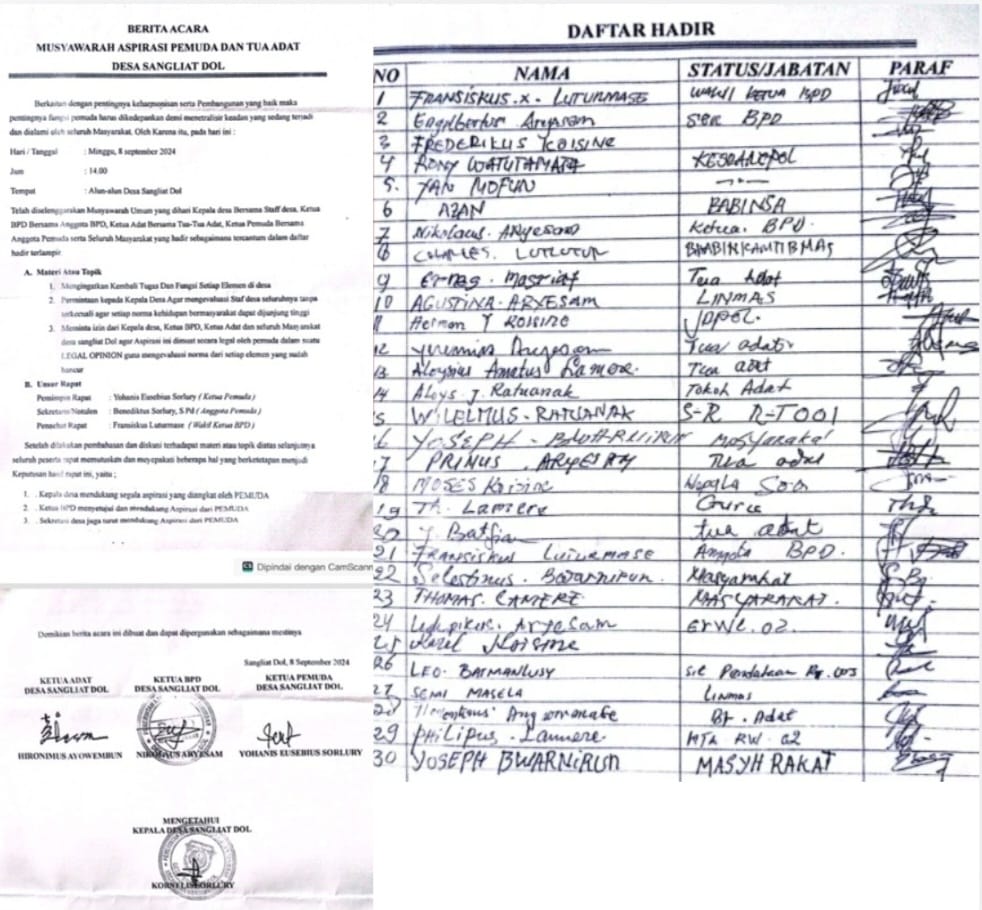 BERITA ACARA
MUSYAWARAH ASPIRASI PEMUDA DAN TUA ADAT
DESA SANGLIAT DOL
Berkaitan dengan pentingnya keharmonisan serta Pembangunan yang baik maka
pentingnya fungsi pemuda harus dikedepankan demi menetralisir keadan yang sedang terjadi
dan dialami oleh seluruh Masyarakat. Oleh Karena itu, pada hari ini :
Hari / Tanggal : Minggu, 8 september 2024
Jam : 14.00
Tempat : Alun-alun Desa Sangliat Dol
Telah diselenggarakan Musyawarah Umum yang dihari Kepala desa Bersama Staff desa, Ketua
BPD Bersama Anggota BPD, Ketua Adat Bersama Tua-Tua Adat, Ketua Pemuda Bersama
Anggota Pemuda serta Seluruh Masyarakat yang hadir sebagaimana tercantum dalam daftar
hadir terlampir.
A. Materi Atau Topik
1. Mengingatkan Kembali Tugas Dan Fungsi Setiap Elemen di desa
2. Permintaan kepada Kepala Desa Agar mengevaluasi Staf desa seluruhnya tanpa
terkecuali agar setiap norma kehidupan bermasyarakat dapat dijunjung tinggi
3. Meminta izin dari Kepala desa, Ketua BPD, Ketua Adat dan seluruh Masyarakat
desa sangliat Dol agar Aspirasi ini dimuat secara legal oleh pemuda dalam suatu
LEGAL OPINION guna mengevaluasi norma dari setiap elemen yang sudah
hancur
B. Unsur Rapat
Pemimpin Rapat : Yohanis Eusebius Sorlury ( Ketua Pemuda )
Sekretaris/Notulen : Benediktus Sorlury, S.Pd ( Anggota Pemuda )
Penasehat Rapat : Fransiskus Luturmase ( Wakil Ketua BPD )
Setelah dilakukan pembahasan dan diskusi terhadapat materi atau topik diatas selanjutnya
seluruh peserta rapat memutuskan dan menyepakati beberapa hal yang berketetapan menjadi
Keputusan hasil rapat ini, yaitu ;
1. . Kepala desa mendukung segala aspirasi yang diangkat oleh PEMUDA
2. . Ketua BPD menyetujui dan mendukung Aspirasi dari PEMUDA
3. . Sekretaris desa juga turut mendukung Aspirasi dari PEMUDA
Dipindai dengan CamScann
Demikian berita acara ini dibuat dan dapat dipergunakan sebagaimana mestinya
Sangliat Dol, 8 September 2024
KETUA ADAT KETUA BPD KETUA PEMUDA
DESA SANGLIAT DOL DESA SANGLIAT DOL DESA SANGLIAT DOL
HIRONIMUS AYOWEMBUN NIKOLAUS ARYESAM YOHANIS EUSEBIUS SORLURY
MENGETAHUI
KEPALA DESA SANGLIAT DOL
KORNELIS SORLURY
DAFTAR HADIR
NO NAMA STATUS/JABATAN PARAF
1 FRANSISKUS.X. LUTURMASE WAKIL KETUA BPD
2 Engelbertus Aryesam SEK BPD
3 FREDERIKUS KOISINE
4 RONY WATUTAMATA KESBANGPOL
5. YAN MOFUN
6 AZAN BABINSA
7 Nikolaus. Aryesam Ketua. BPD.
8 CHARLES. LUTURTUR BHABINKAMTIBMAS
9 Masriat Tua Adat
10 AGUSTINA. ARYESAM LINMAS
11 Herman Y KOISINE
12 Yeremias Aryesam Tua adat
13 Aloysius Amatus Lamere. Tua adt
14 Aloys. J. Ratuanak Tokoh Adat
15 WILELMUS. RATUANAK
16 YOSEPH Masyarakat
17 PRIMUS. ARYESAM Tua adat
18 MOSES Koisine Kepala Soa
19 Th. Lamere Guru
20 J. Batfian tua adat
21 FRANSISKUS LUTURMASE Anggota BPD.
22 Selestinus. Bwarnirun. Masyarakat
23 THOMAS. LAMERE MASYARAKAT.
24 Aryesam
25 Karel Koisine
26 LEO. BATMANLUSY
27 SEMI MASELA LINMAS
28 Adat
29 PHILIPUS. Lamere. RW. 02
30 YOSEPH BWARNIRUN MASYH RAKAT